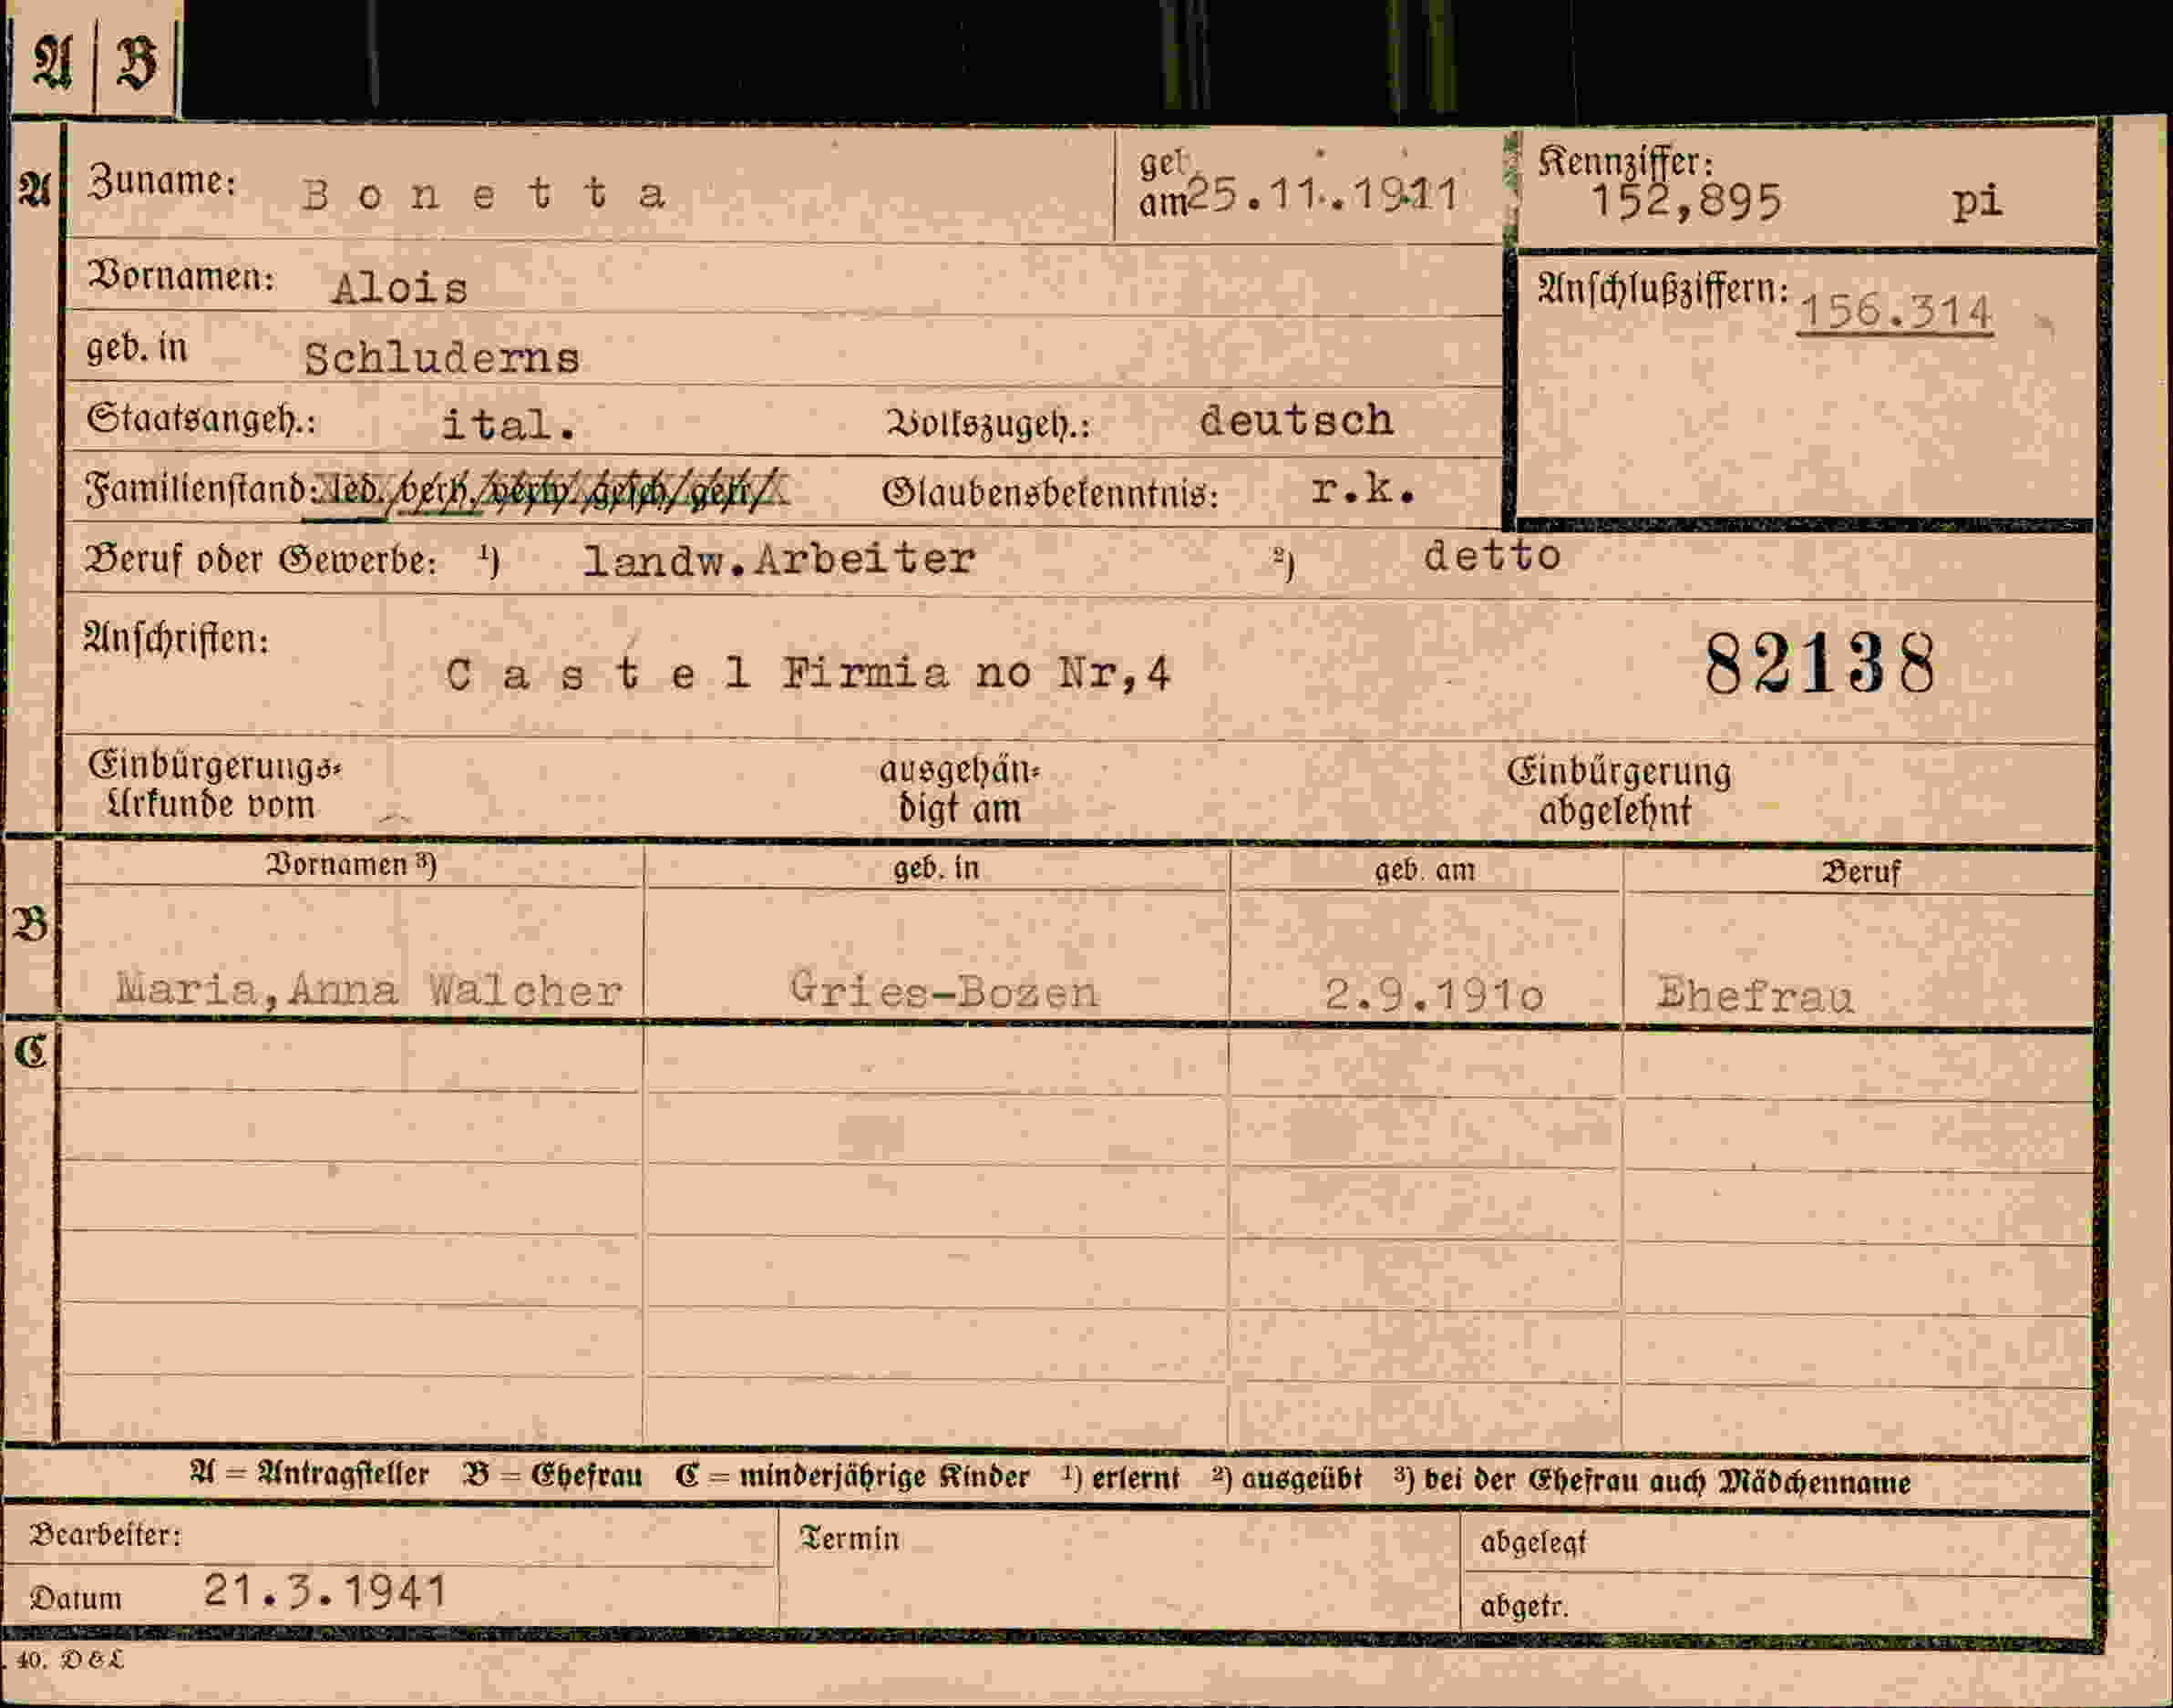 A B
A Zuname: Bonetta geb. am 25.11.1911 Kennziffer: 152,895 pi
Vornamen: Alois Anschlußziffern: 156.314
geb. in Schluderns
Staatsangeh.: ital. Volkszugeh.: deutsch
Familienstand: led./verh./verw./gesch./getr./ Glaubensbekenntnis: r.k.
Beruf oder Gewerbe: ¹) landw.Arbeiter ²) detto
Anschriften: Castel Firmia no Nr,4 82138
Einbürgerungs- ausgehän- Einbürgerung
Urkunde vom digt am abgelehnt
Vornamen ³) geb. in geb. am Beruf
B
Maria,Anna Walcher Gries-Bozen 2.9.191o Ehefrau
C
A = Antragsteller B = Ehefrau C = minderjährige Kinder ¹) erlernt ²) ausgeübt ³) bei der Ehefrau auch Mädchenname
Bearbeiter: Termin abgelegt
Datum 21.3.1941 abgetr.
40. D & L